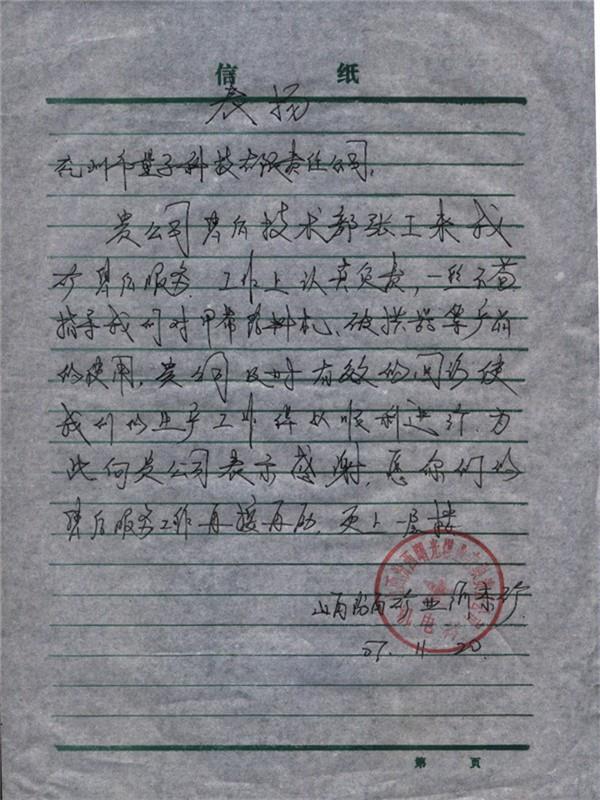 信 纸
表扬
兖州市量子科技有限责任公司,
贵公司售后技术部张工来我
矿售后服务,工作上认真负责,一丝不苟
指导我们对甲带给料机、破拱器等产品
的使用,贵公司及时有效的回访使
我们的生产工作得以顺利进行,为
此向贵公司表示感谢,愿你们的
售后服务工作再接再励,更上一层楼
山西汾西矿业
07.11.20.
机电科
第 页